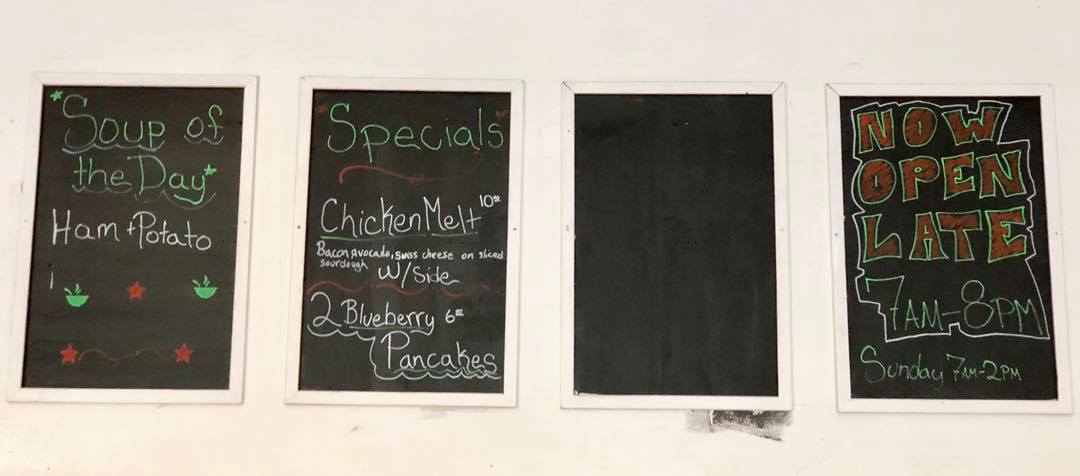 Soup of
the Day
Ham + Potato
Specials
Chicken Melt 10⁰⁰
Bacon, avocado, swiss cheese on sliced
sourdough W/ Side
2 Blueberry 6⁰⁰
Pancakes
NOW
OPEN
LATE
7AM-8PM
Sunday 7AM-2PM